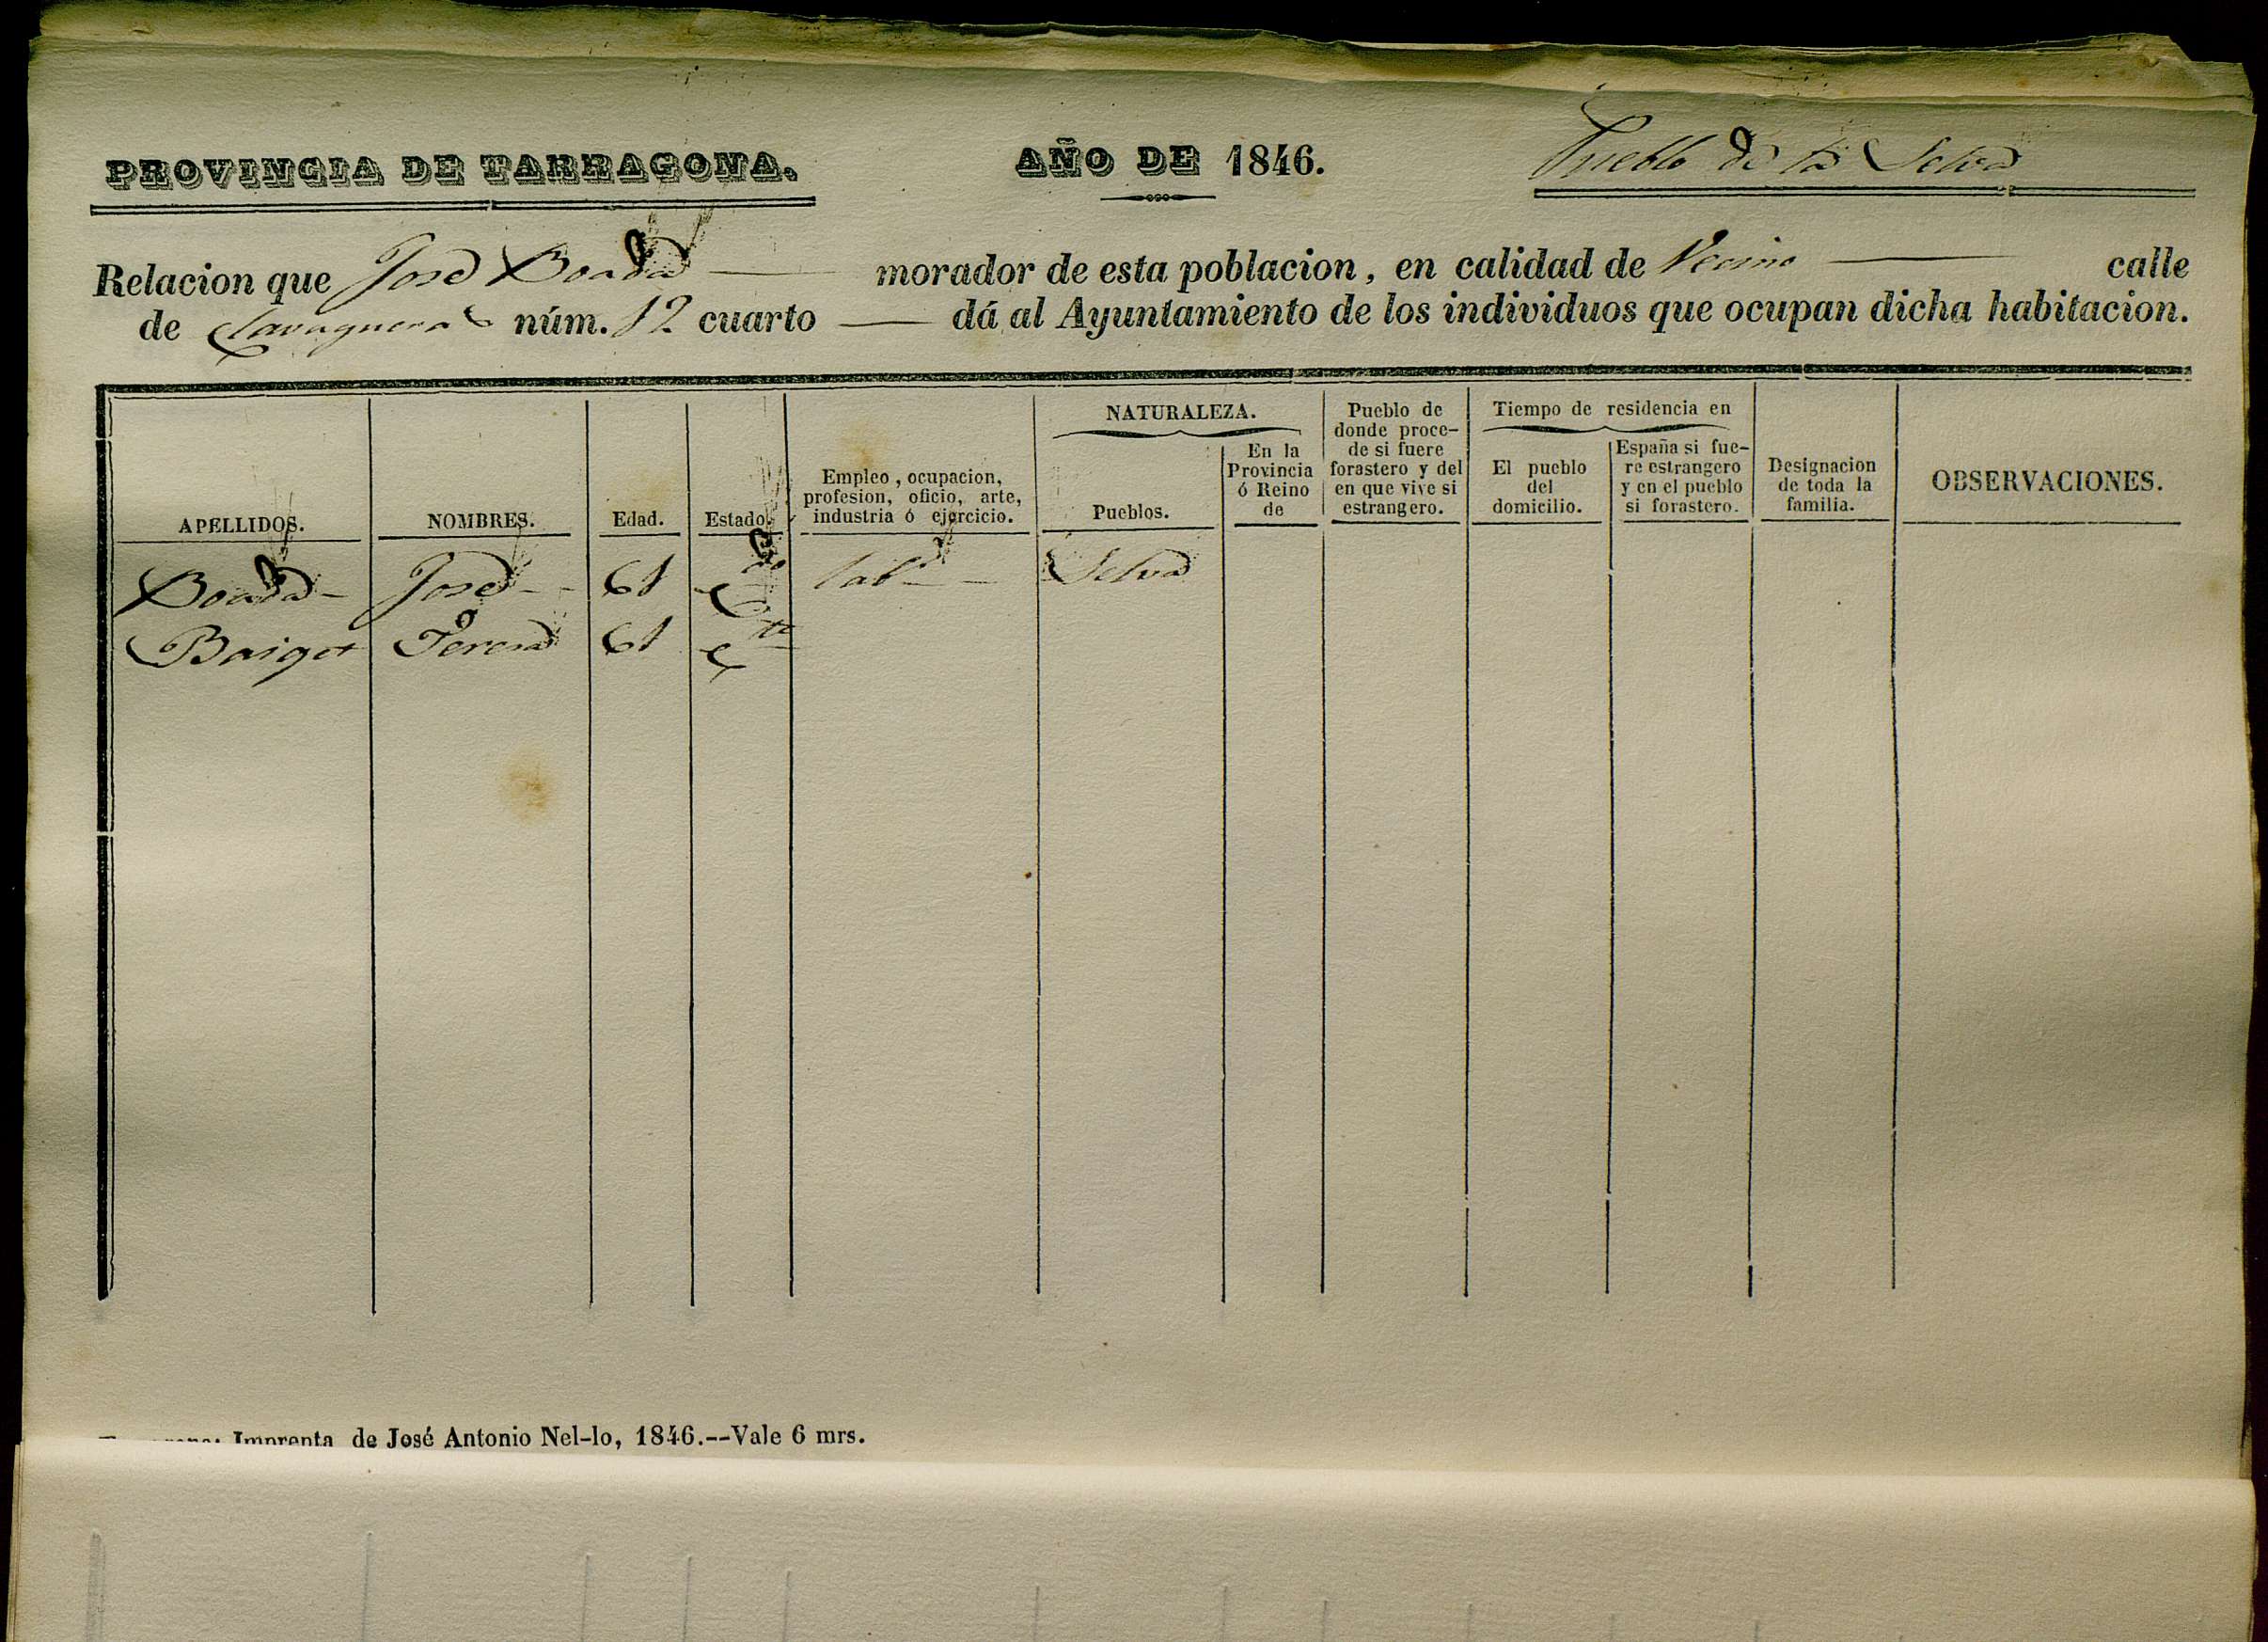 PROVINCIA DE TARRAGONA.
AÑO DE 1846.
Pueblo de la Selva
Relacion que José Boada morador de esta poblacion, en calidad de Vecino calle
de núm. 12 cuarto — dá al Ayuntamiento de los individuos que ocupan dicha habitacion.
APELLIDOS.
NOMBRES.
Edad.
Estado.
Empleo, ocupacion,
profesion, oficio, arte,
industria ó ejercicio.
NATURALEZA.
Pueblos.
En la
Provincia
ó Reino
de
Pueblo de
donde proce-
de si fuere
forastero y del
en que vive si
estrangero.
Tiempo de residencia en
El pueblo
del
domicilio.
España si fue-
re estrangero
y en el pueblo
si forastero.
Designacion
de toda la
familia.
OBSERVACIONES.
Boada José 61 Cdo labr Selva
Baiget Teresa 61 C
Imprenta de José Antonio Nel-lo, 1846.--Vale 6 mrs.